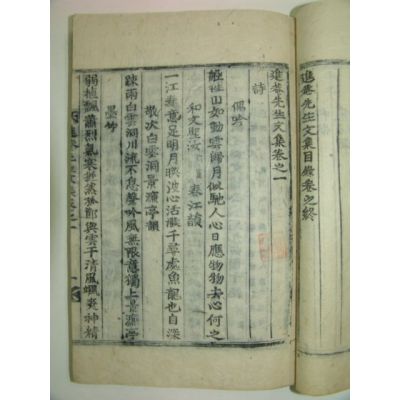 進菴先生文集目錄卷之終
進菴先生文集卷之一
詩
偶吟
山如動雲歸月似馳人心日應物物去心何之
和文聖汝 春江韻
一江春意足明月映波心活潑千尋處魚龍也自深
敬次白雲洞景濂亭韻
踈雨白雲洞川流不息聲吟風無限意獨上景濂亭
墨竹
弱植飄蕭烈氣寒 與雲干清風颯爽神精